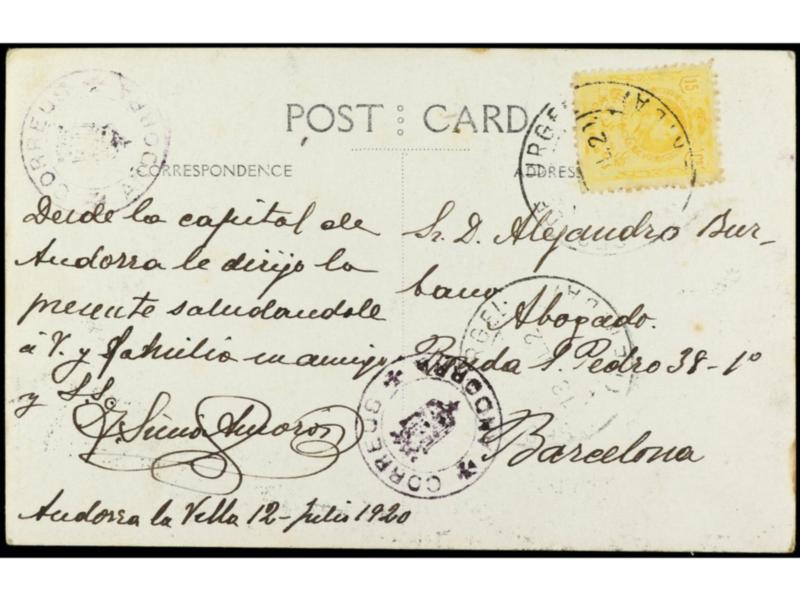 POST CARD
CORRESPONDENCE
ADDRESS
CORREUS ANDORRA
15
Desde la capital de
Andorra le dirijo la
presente saludandole
á V. y familia su amigo
y S.S.
Andorra la Vella 12-Julio 1920
Sr. D. Alejandro Bur-
bano
Abogado.
Ronda S. Pedro 38-1º
Barcelona
CORREUS ANDORRA
URGEL